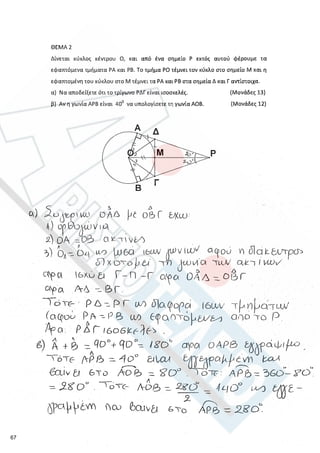 ΘΕΜΑ 2
Δίνεται κύκλος κέντρου Ο, και από ένα σημείο Ρ εκτός αυτού φέρουμε τα
εφαπτόμενα τμήματα ΡΑ και ΡΒ. Το τμήμα ΡΟ τέμνει τον κύκλο στο σημείο Μ και η
εφαπτομένη του κύκλου στο Μ τέμνει τα ΡΑ και ΡΒ στα σημεία Δ και Γ αντίστοιχα.
α) Να αποδείξετε ότι το τρίγωνο ΡΔΓ είναι ισοσκελές. (Μονάδες 13)
β) Αν η γωνία ΑΡΒ είναι 40⁰ να υπολογίσετε τη γωνία ΑΟΒ. (Μονάδες 12)
Α Δ
Ο Μ Ρ
Β Γ
α) Συγκρίνω ΟΑΔ με ΟΒΓ έχω
1) ορθογώνια
2) ΟΑ = ΟΒ ακτίνες
3) Ο₁ = Ο₂ ως μισά ίσων γωνιών αφού η διάκεντρος
διχοτομεί τη γωνία των ακτίνων
άρα ισχύει Γ-Π-Γ άρα ΟΑΔ = ΟΒΓ
άρα ΑΔ = ΒΓ.
Τότε ΡΔ = ΡΓ ως διαφορά ίσων τμημάτων
(αφού ΡΑ = ΡΒ ως εφαπτόμενες από το Ρ.
Άρα ΡΔΓ ισοσκελές.
β) Α + Β = 90° + 90° = 180° άρα ΟΑΡΒ εγγράψιμο.
Τότε ΑΡΒ = 40° είναι εγγεγραμμένη και
βαίνει στο ΑΟΒ = 80° Τότε ΑΡΒ = 360° - 80°
= 280°. Τότε ΑΟΒ = 280°/2 = 140° ως εγγε-
γραμμένη που βαίνει στο ΑΡΒ = 280°.
67